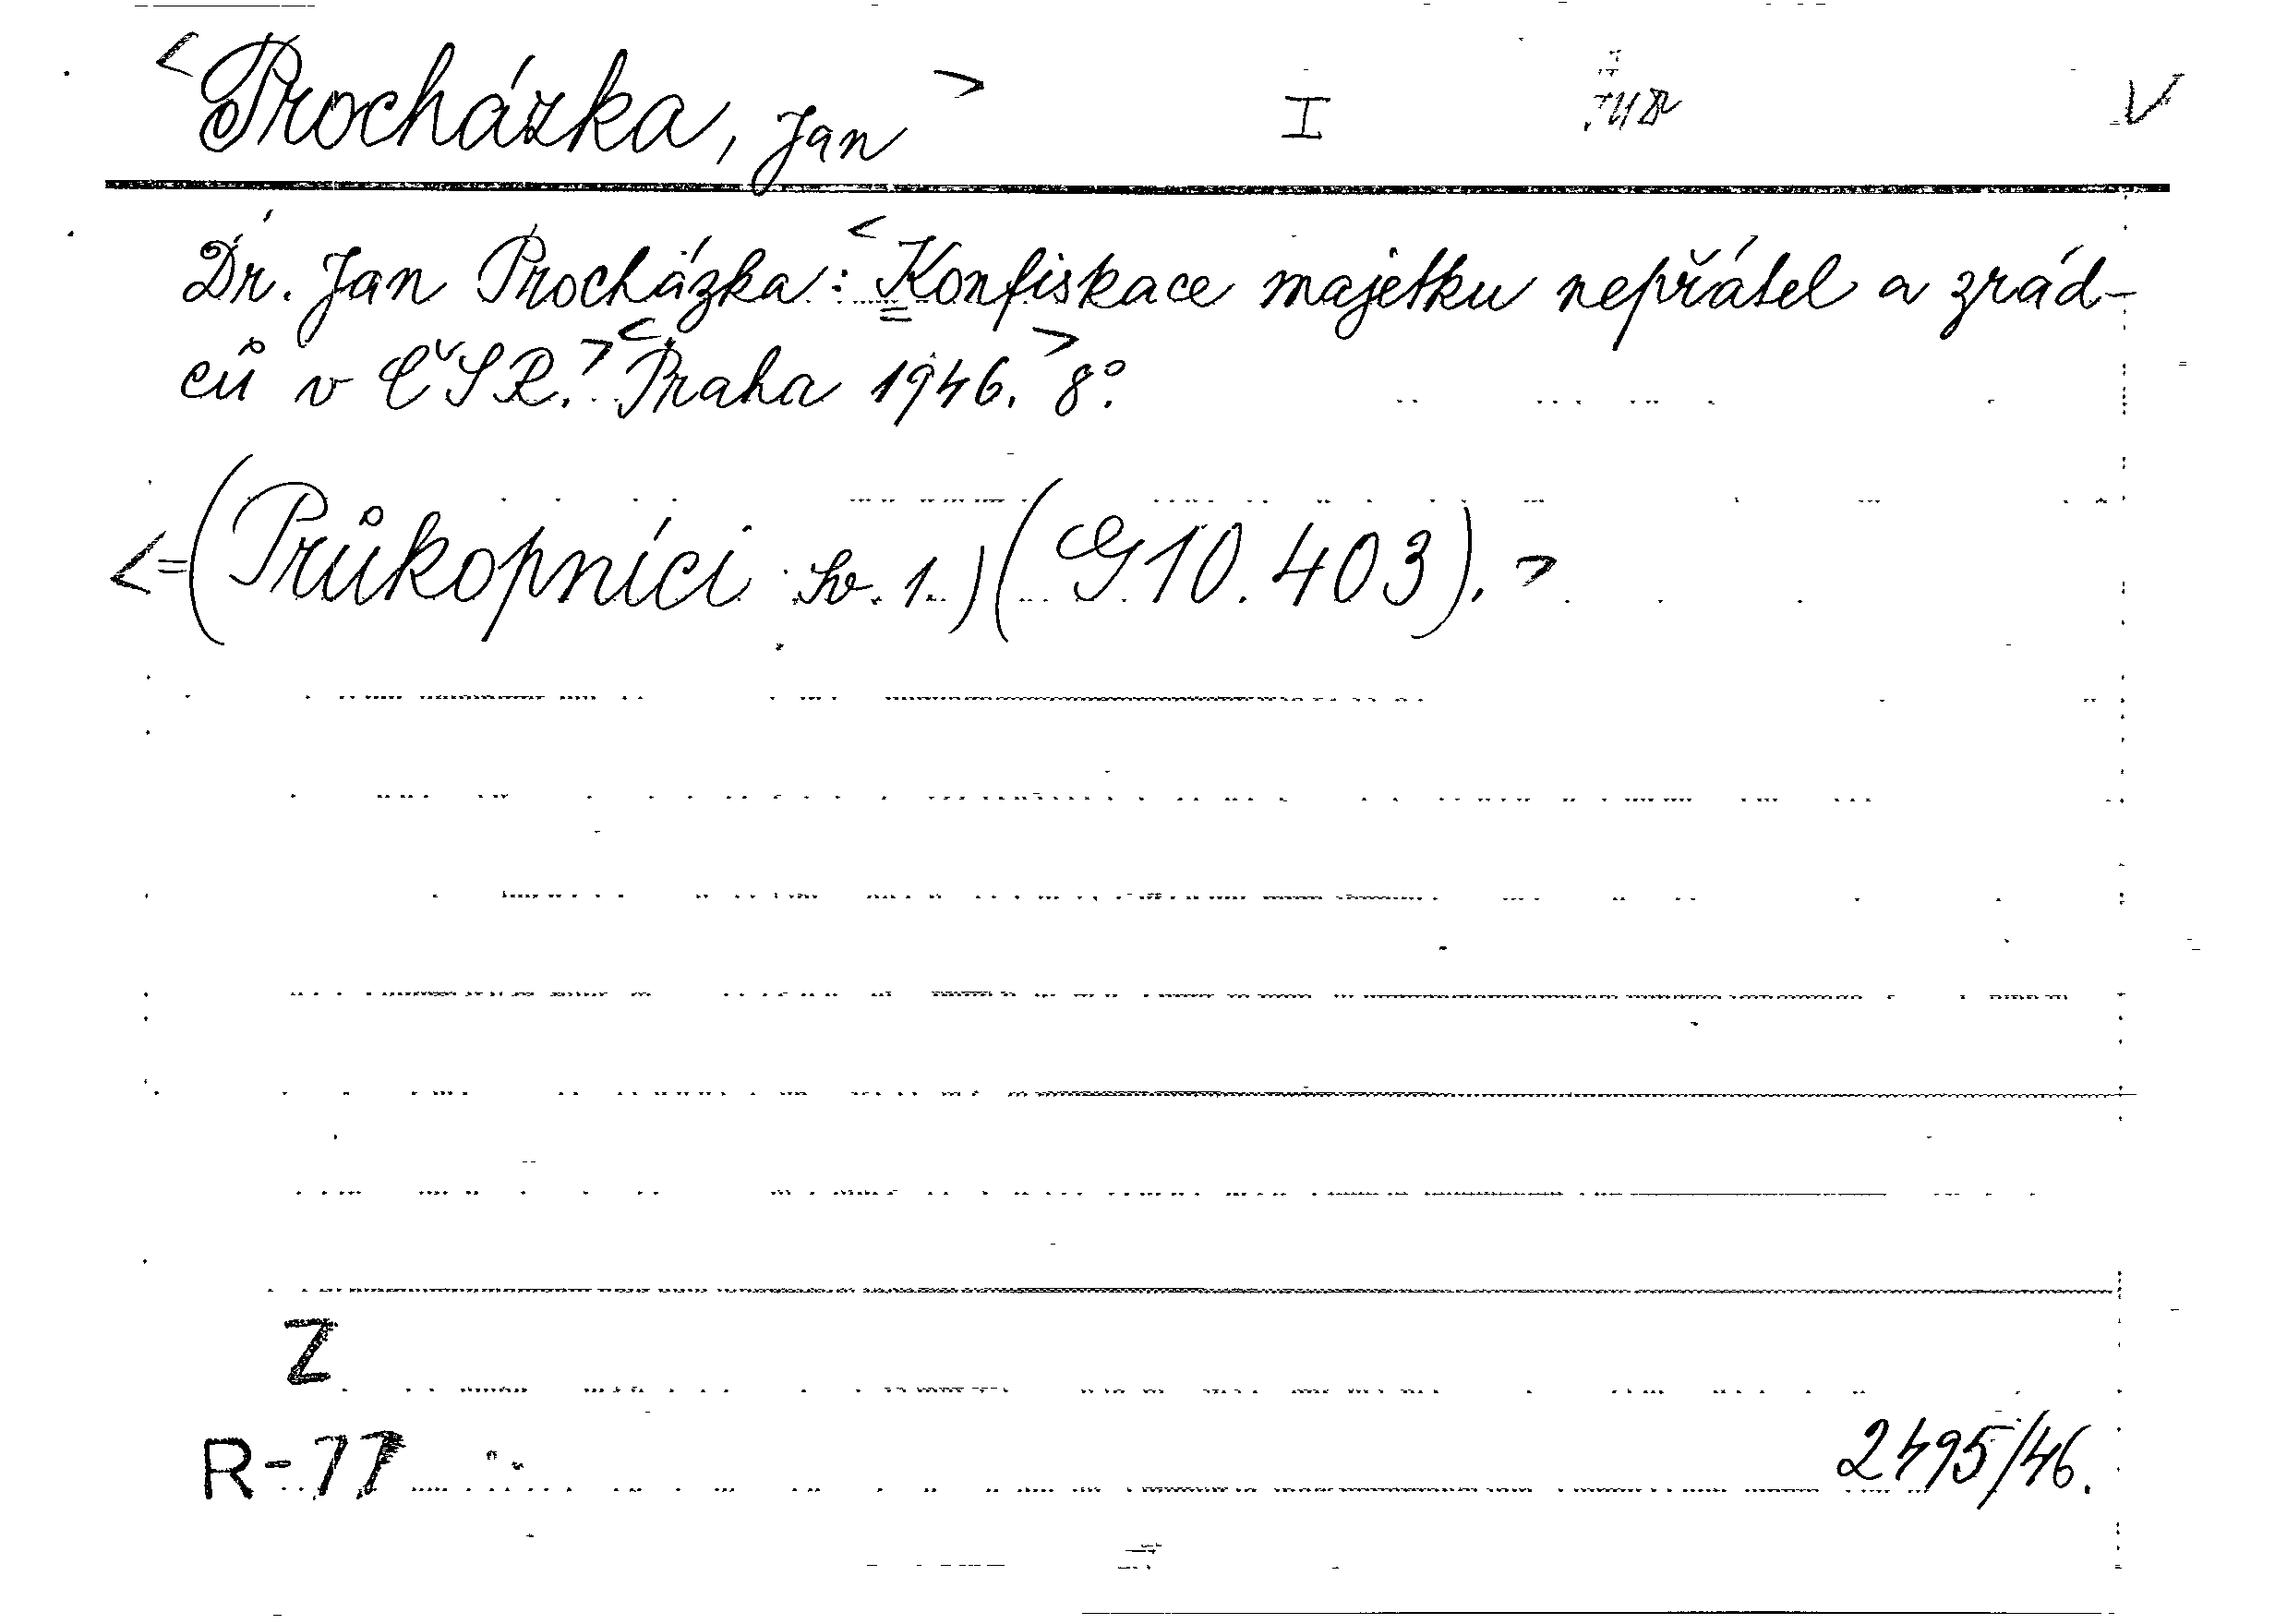 <Procházka, Jan> I V
Dr. Jan Procházka: <Konfiskace majetku nepřátel a zrád-
ců v ČSR.> <Praha 1946.> 8°.
<=(Průkopníci sv. 1.) (G 10.403).>
Z
R-77 2495/46.